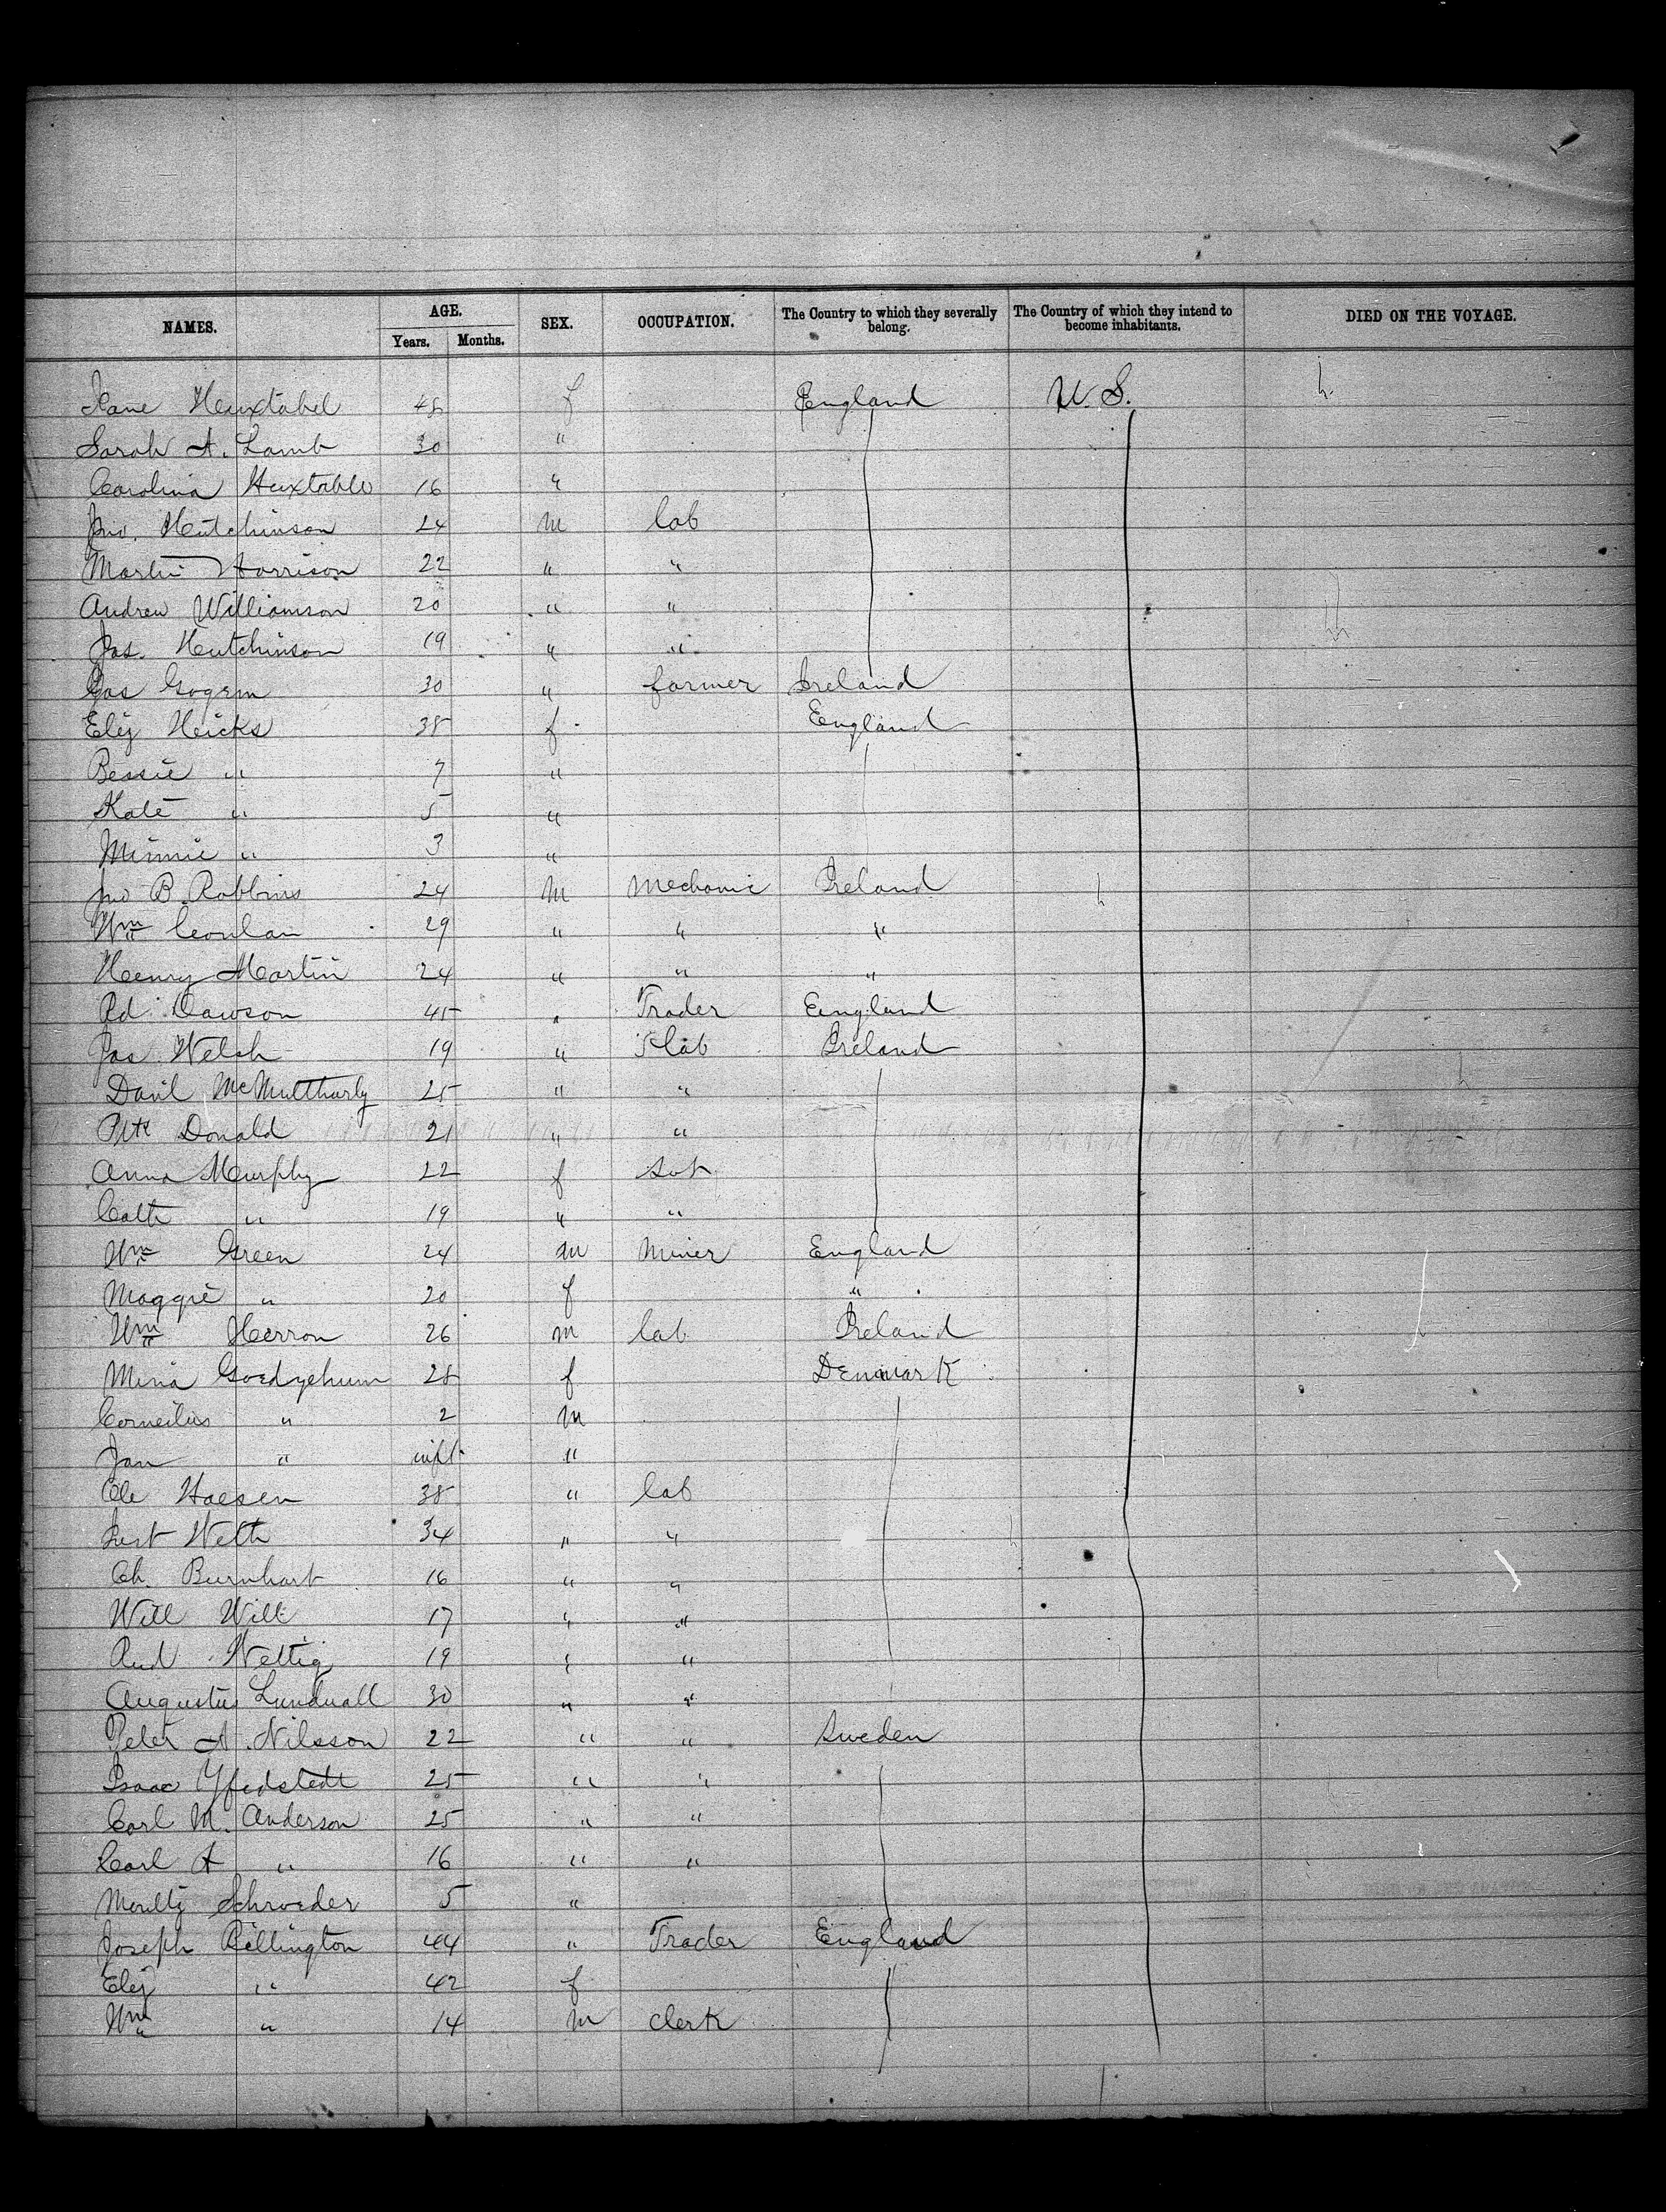 NAMES. AGE. SEX. OCCUPATION. The Country to which they severally belong. The Country of which they intend to become inhabitants. DIED ON THE VOYAGE.
Years. Months.
Jane Huxtabel 48 f England U.S.
Sarah A. Lamb 30 "
Carolina Huxtable 16 "
Jno. Hutchinson 24 m lab
Martin Harrison 22 " "
Andrew Williamson 20 " "
Jas. Hutchinson 19 " "
30 " farmer Ireland
Eliz Hicks 38 f England
Bessie " 7 "
Kate " 5 "
Minnie " 3 "
Jno B. Robbins 24 m Mechanic Ireland
Wm Conlan 29 " " "
Henry Martin 24 " " "
Dawson 45 " Trader England
Jas. Welsh 19 " lab Ireland
25 " "
Donald 21 " "
Anna Murphy 22 f
Cath " 19 " "
Wm Green 24 m Miner England
Maggie " 20 f "
Wm Herron 26 m lab Ireland
Mina 28 f Denmark
Cornelius " 2 m
Jan " inft "
Ole 38 " lab
34 " "
Ch. Burnhart 16 " "
Will Will 17 " "
Wettig 19 " "
Augustus Lundvall 30 " "
Peter A. Nilsson 22 " " Sweden
Isaac 25 " "
Carl M. Anderson 25 " "
Carl A " 16 " "
Schroeder 5 "
Joseph Billington 44 " Trader England
Eliz " 42 f
Wm " 14 m Clerk